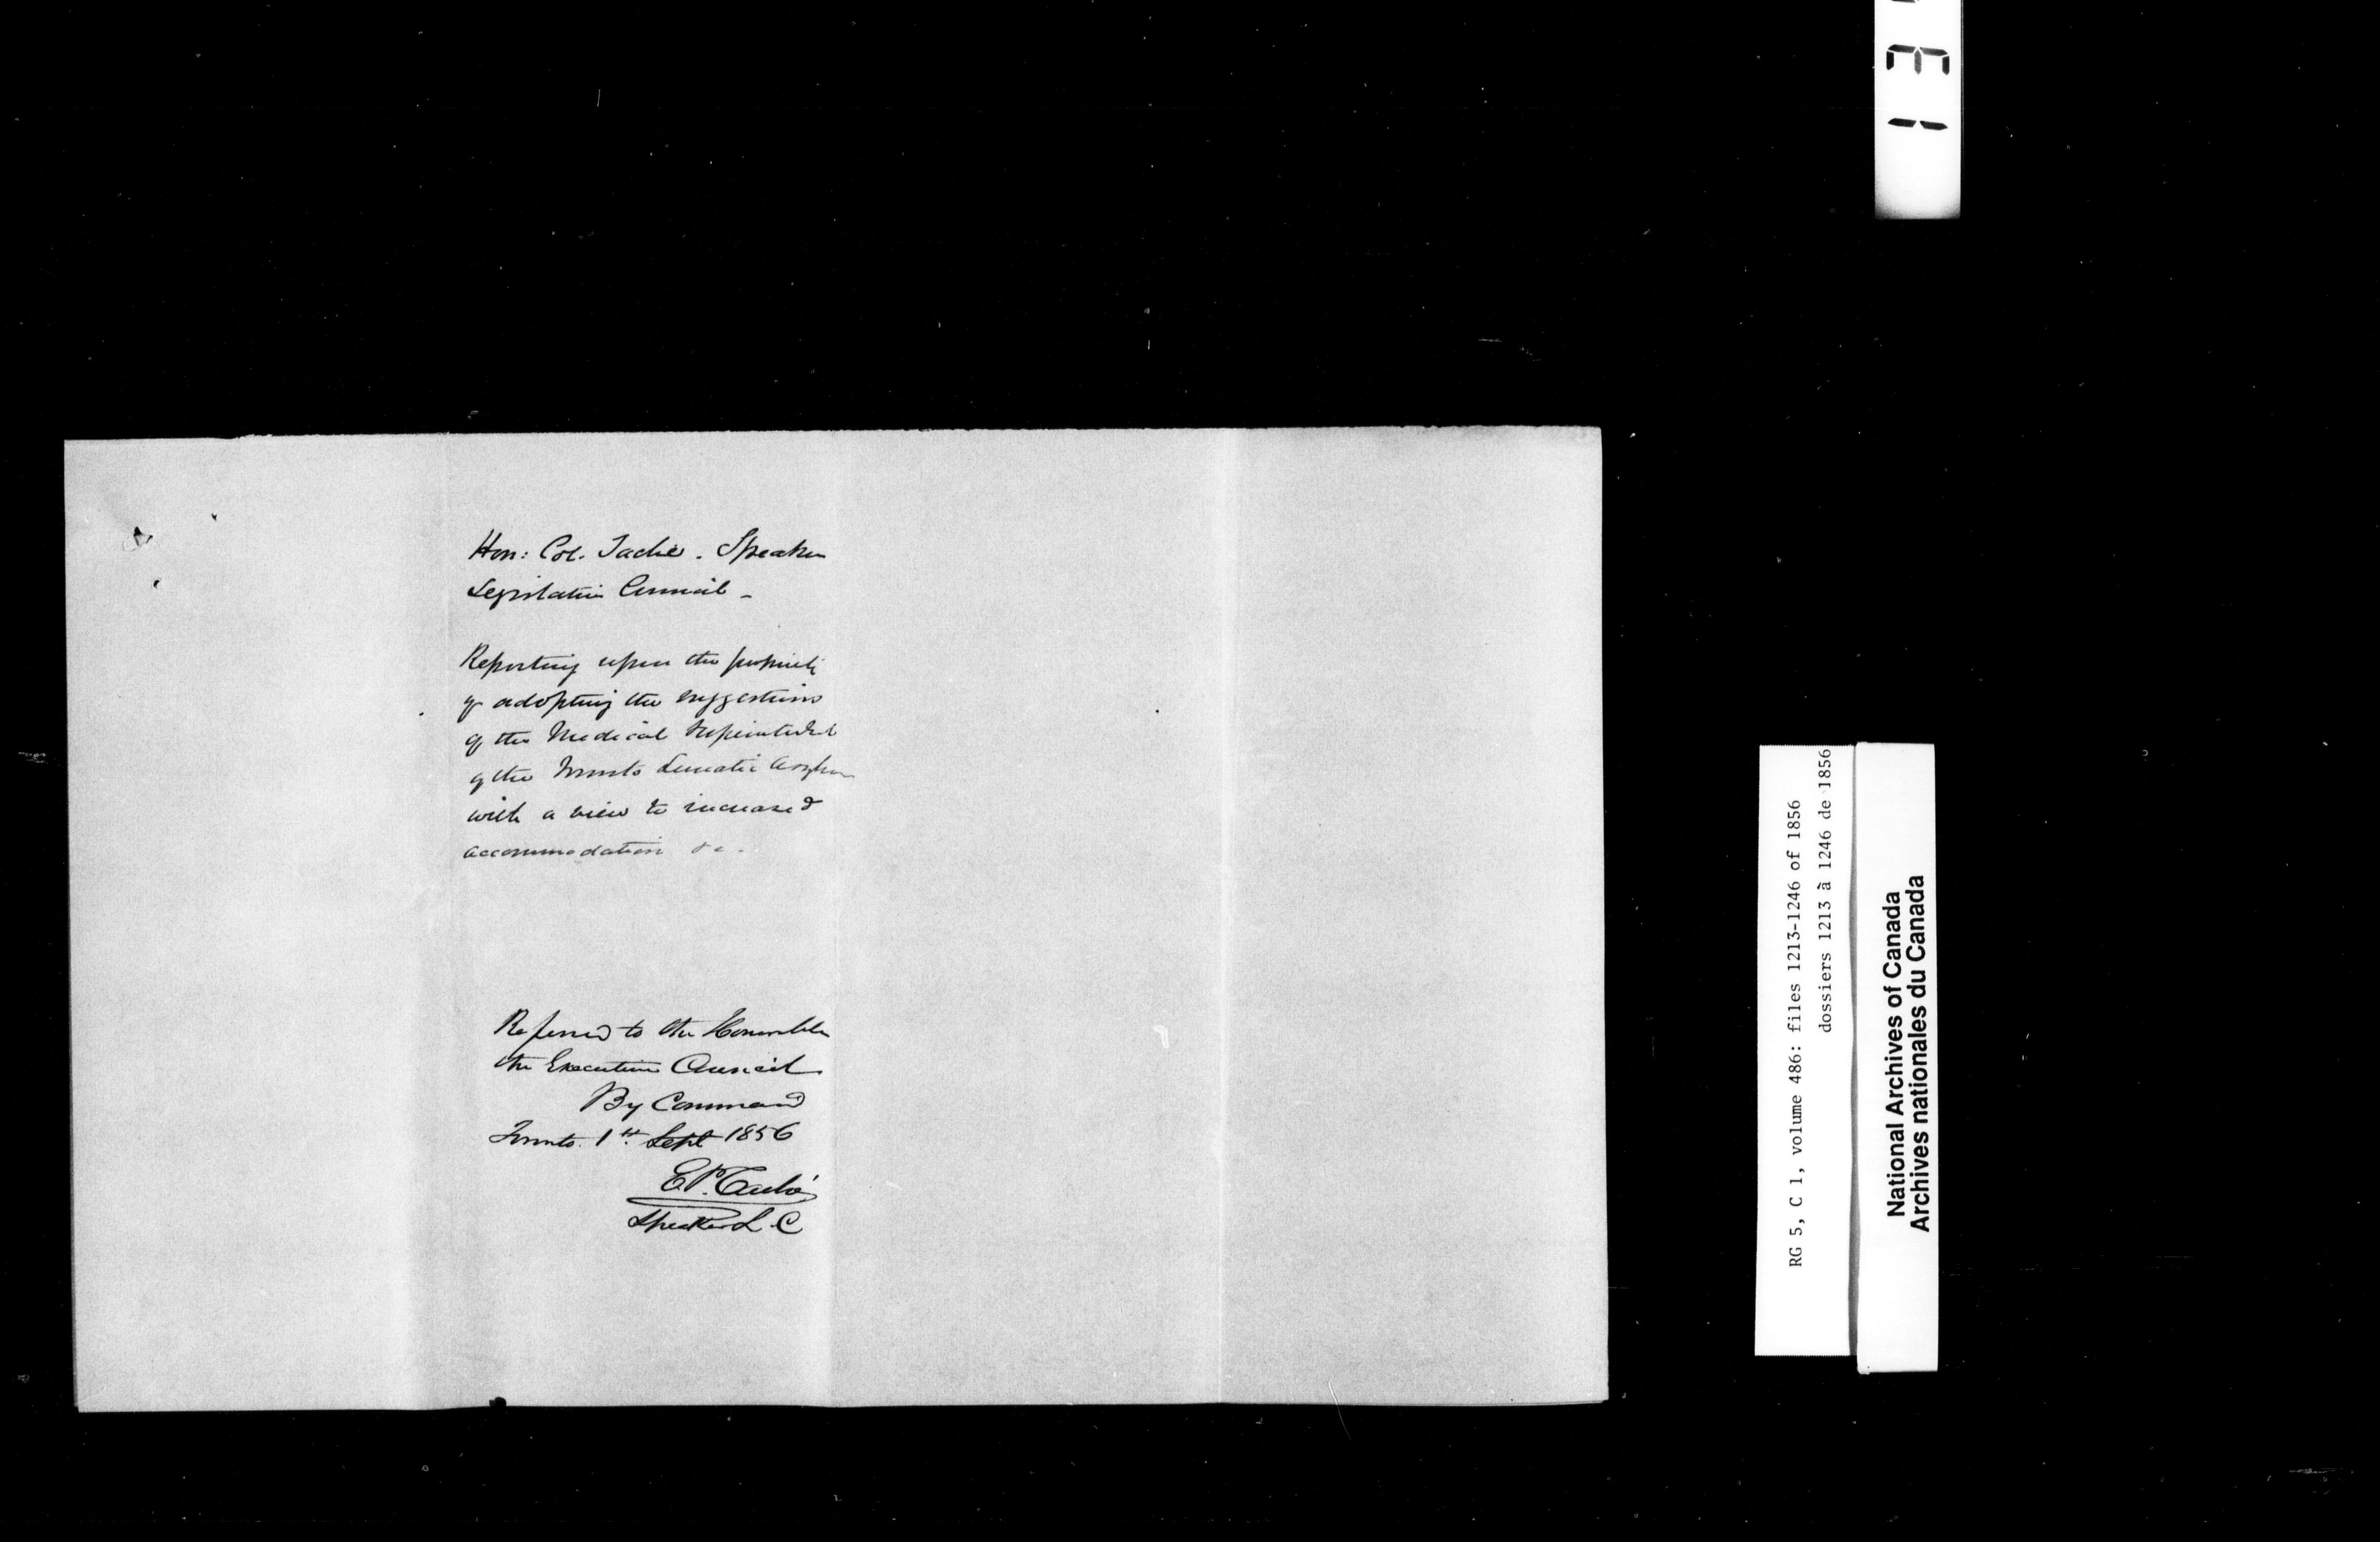 Hon: Col. Taché. Speaker
Legislative Council -
Reporting upon the propriety
of adopting the suggestions
of the Medical Superintendent
of the Toronto Lunatic Asylum
with a view to increased
accommodation &c.
Referred to the Honorable
the Executive Council
By Command
Toronto. 1st Sept 1856
E P. Taché
Speaker L. C
RG 5, C 1, volume 486: files 1213-1246 of 1856
dossiers 1213 à 1246 de 1856
National Archives of Canada
Archives nationales du Canada